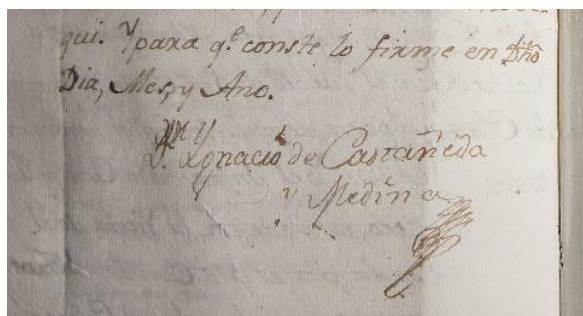 qui. Y para q.e conste lo firme en dho
Dia, Mes, y Año.
D. Ygnacio de Castañeda
y Medina